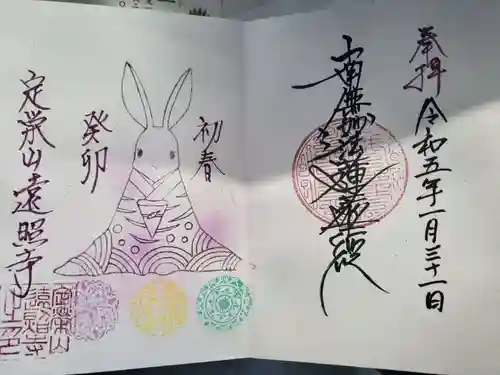 奉拝
令和五年一月三十一日
南無妙法蓮華経
初春
癸卯
定栄山遠照寺